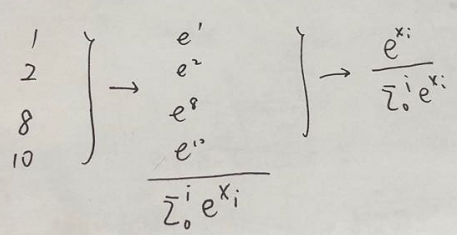 1
2
8
10
} →
e¹
e²
e⁸
e¹⁰
Σ₀ⁱ e^{x_i}
} →
e^{x_i}
Σ₀ⁱ e^{x_i}